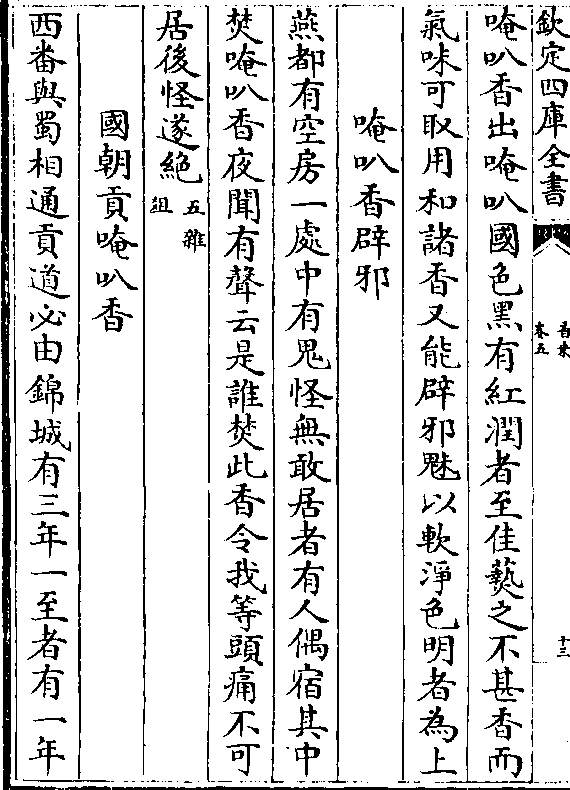 欽定四庫全書
香乘
卷五
十三
唵叭香出唵叭國色黑有紅潤者至佳爇之不甚香而
氣味可取用和諸香又能辟邪魅以軟淨色明者為上
唵叭香辟邪
燕都有空房一處中有鬼怪無敢居者有人偶宿其中
焚唵叭香夜聞有聲云是誰焚此香令我等頭痛不可
居後怪遂絕五雜
俎
國朝貢唵叭香
西番與蜀相通貢道必由錦城有三年一至者有一年